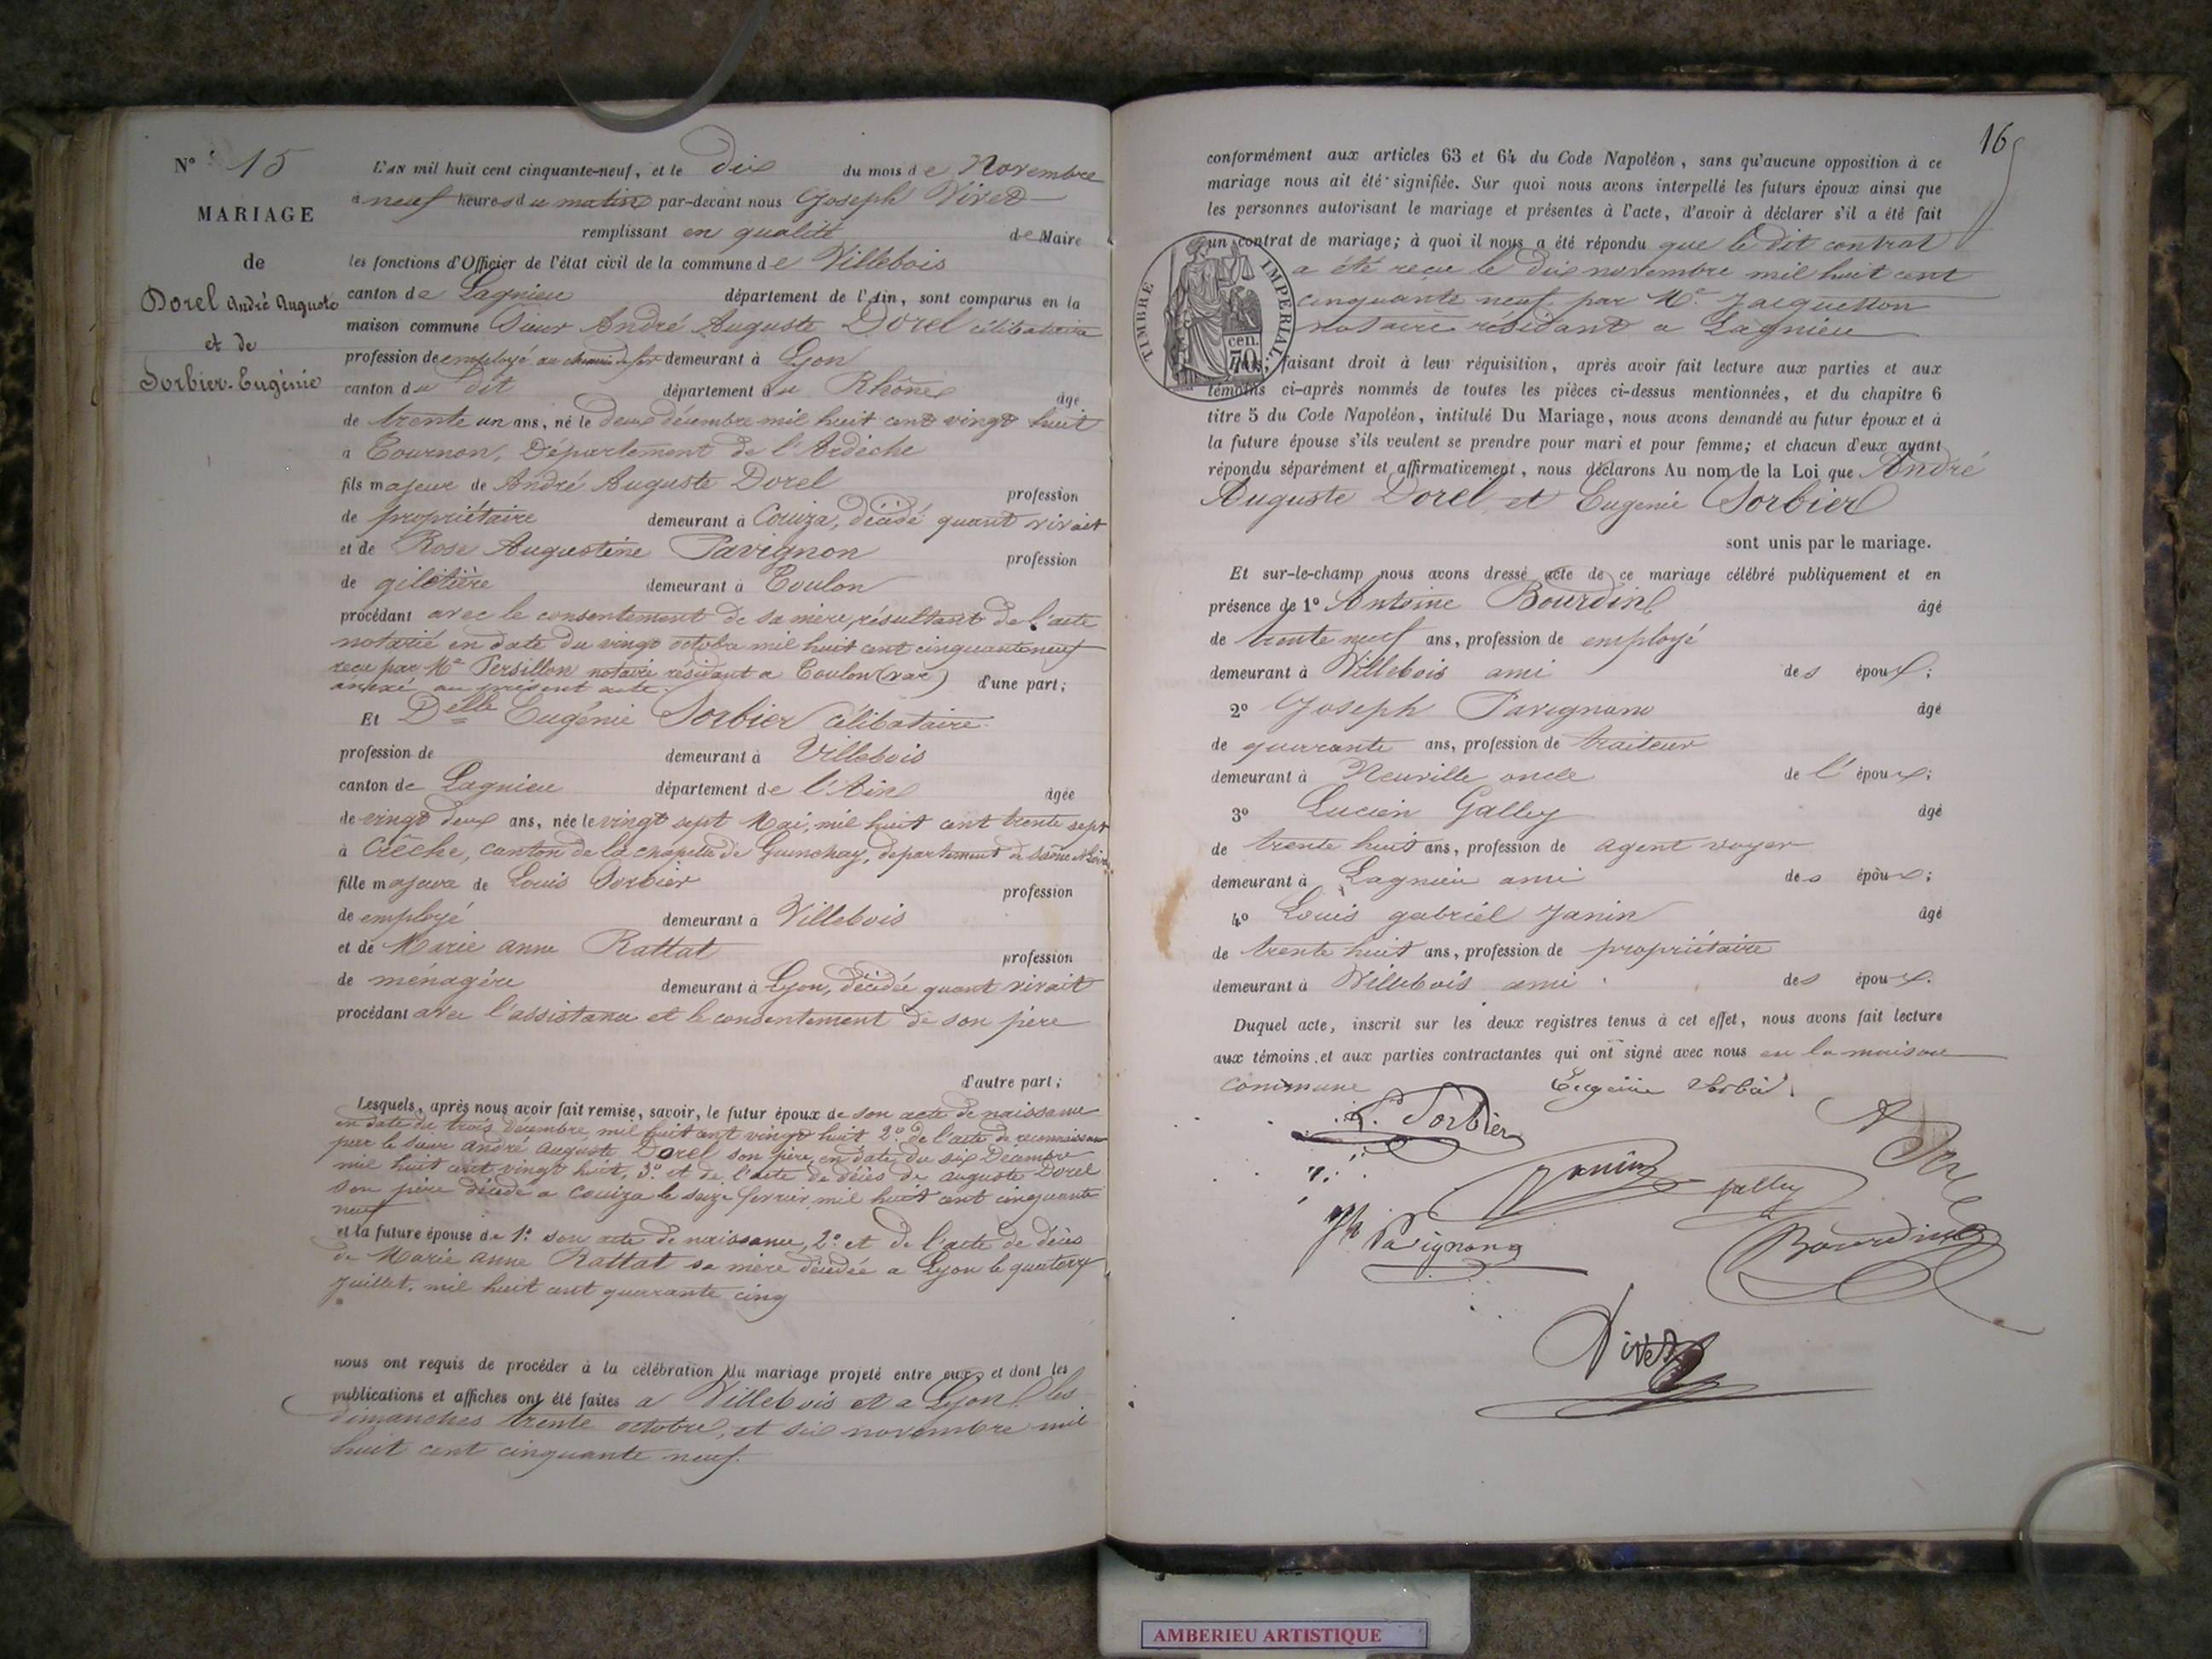 N° 15
MARIAGE
de
Dorel André Auguste
et de
Sorbier Eugénie
L'AN mil huit cent cinquante-neuf, et le dix du mois de Novembre
à neuf heures du matin par-devant nous Joseph Vivet
remplissant en qualité de Maire
les fonctions d'Officier de l'état civil de la commune de Villebois
canton de Lagnieu département de l'Ain, sont comparus en la
maison commune Sieur André Auguste Dorel célibataire
profession de employé au chemin de fer demeurant à Lyon
canton du dit département du Rhône âgé
de trente un ans, né le deux décembre mil huit cent vingt huit
à Tournon, Département de l'Ardèche
fils majeur de André Auguste Dorel profession
de propriétaire demeurant à Couiza, décédé quant vivait
et de Rose Augustine Pavignon profession
de giletière demeurant à Toulon
procédant avec le consentement de sa mère, résultant de l'acte
notarié en date du vingt octobre mil huit cent cinquante neuf
reçu par Me Persillon notaire résidant a Toulon (var)
anexé au présent acte. d'une part;
Et Delle Eugénie Sorbier célibataire.
profession de demeurant à Villebois
canton de Lagnieu département de l'Ain âgée
de vingt deux ans, née le vingt sept Mai, mil huit cent trente sept
à Crêche, canton de la chapelle de Guinchay, departement de Saône et Loire
fille majeure de Louis Sorbier profession
de employé demeurant à Villebois
et de Marie anne Rattat profession
de ménagère demeurant à Lyon, décédée quant vivait
procédant avec l'assistance et le consentement de son père
d'autre part;
Lesquels, après nous avoir fait remise, savoir, le futur époux de son acte de naissance
en date du trois décembre mil huit cent vingt huit 2° de l'acte de reconnaissance
par le sieur André Auguste Dorel son père, en date du six Décembre
mil huit cent vingt huit, 3° et de l'acte de décès de auguste Dorel
son père décédé a Couiza le seize fevrier mil huit cent cinquante
neuf
et la future épouse de 1° son acte de naissance, 2° et de l'acte de décès
de Marie anne Rattat sa mère décédée a Lyon le quatorze
juillet, mil huit cent quarante cinq
nous ont requis de procéder à la célébration du mariage projeté entre eux, et dont les
publications et affiches ont été faites a Villebois et a Lyon les
dimanches trente octobre, et six novembre mil
huit cent cinquante neuf.
16
conformément aux articles 63 et 64 du Code Napoléon, sans qu'aucune opposition à ce
mariage nous ait été signifiée. Sur quoi nous avons interpellé les futurs époux ainsi que
les personnes autorisant le mariage et présentes à l'acte, d'avoir à déclarer s'il a été fait
un contrat de mariage; à quoi il nous a été répondu que le dit contrat
a été reçu le dix novembre mil huit cent
cinquante neuf par Me Jacquesson
notaire résidant a Lagnieu
TIMBRE IMPERIAL
70 cen.
faisant droit à leur réquisition, après avoir fait lecture aux parties et aux
témoins ci-après nommés de toutes les pièces ci-dessus mentionnées, et du chapitre 6
titre 5 du Code Napoléon, intitulé Du Mariage, nous avons demandé au futur époux et à
la future épouse s'ils veulent se prendre pour mari et pour femme; et chacun d'eux ayant
répondu séparément et affirmativement, nous déclarons Au nom de la Loi que André
Auguste Dorel et Eugenie Sorbier
sont unis par le mariage.
Et sur-le-champ nous avons dressé acte de ce mariage célébré publiquement et en
présence de 1° Antoine Bourdin âgé
de trente neuf ans, profession de employé
demeurant à Villebois ami des époux;
2° Joseph Pavignano âgé
de quarante ans, profession de traiteur
demeurant à Neuville oncle de l'époux;
3° Lucien Galley âgé
de trente huit ans, profession de agent voyer
demeurant à Lagnieu ami des époux;
4° Louis gabriel Janin âgé
de trente huit ans, profession de propriétaire
demeurant à Villebois ami des époux.
Duquel acte, inscrit sur les deux registres tenus à cet effet, nous avons fait lecture
aux témoins et aux parties contractantes qui ont signé avec nous en la maison
commune Eugénie Sorbié
L. Sorbier
A Dorel
Janin
galley
Jh Pavignano
Bourdin
Vivet
AMBERIEU ARTISTIQUE